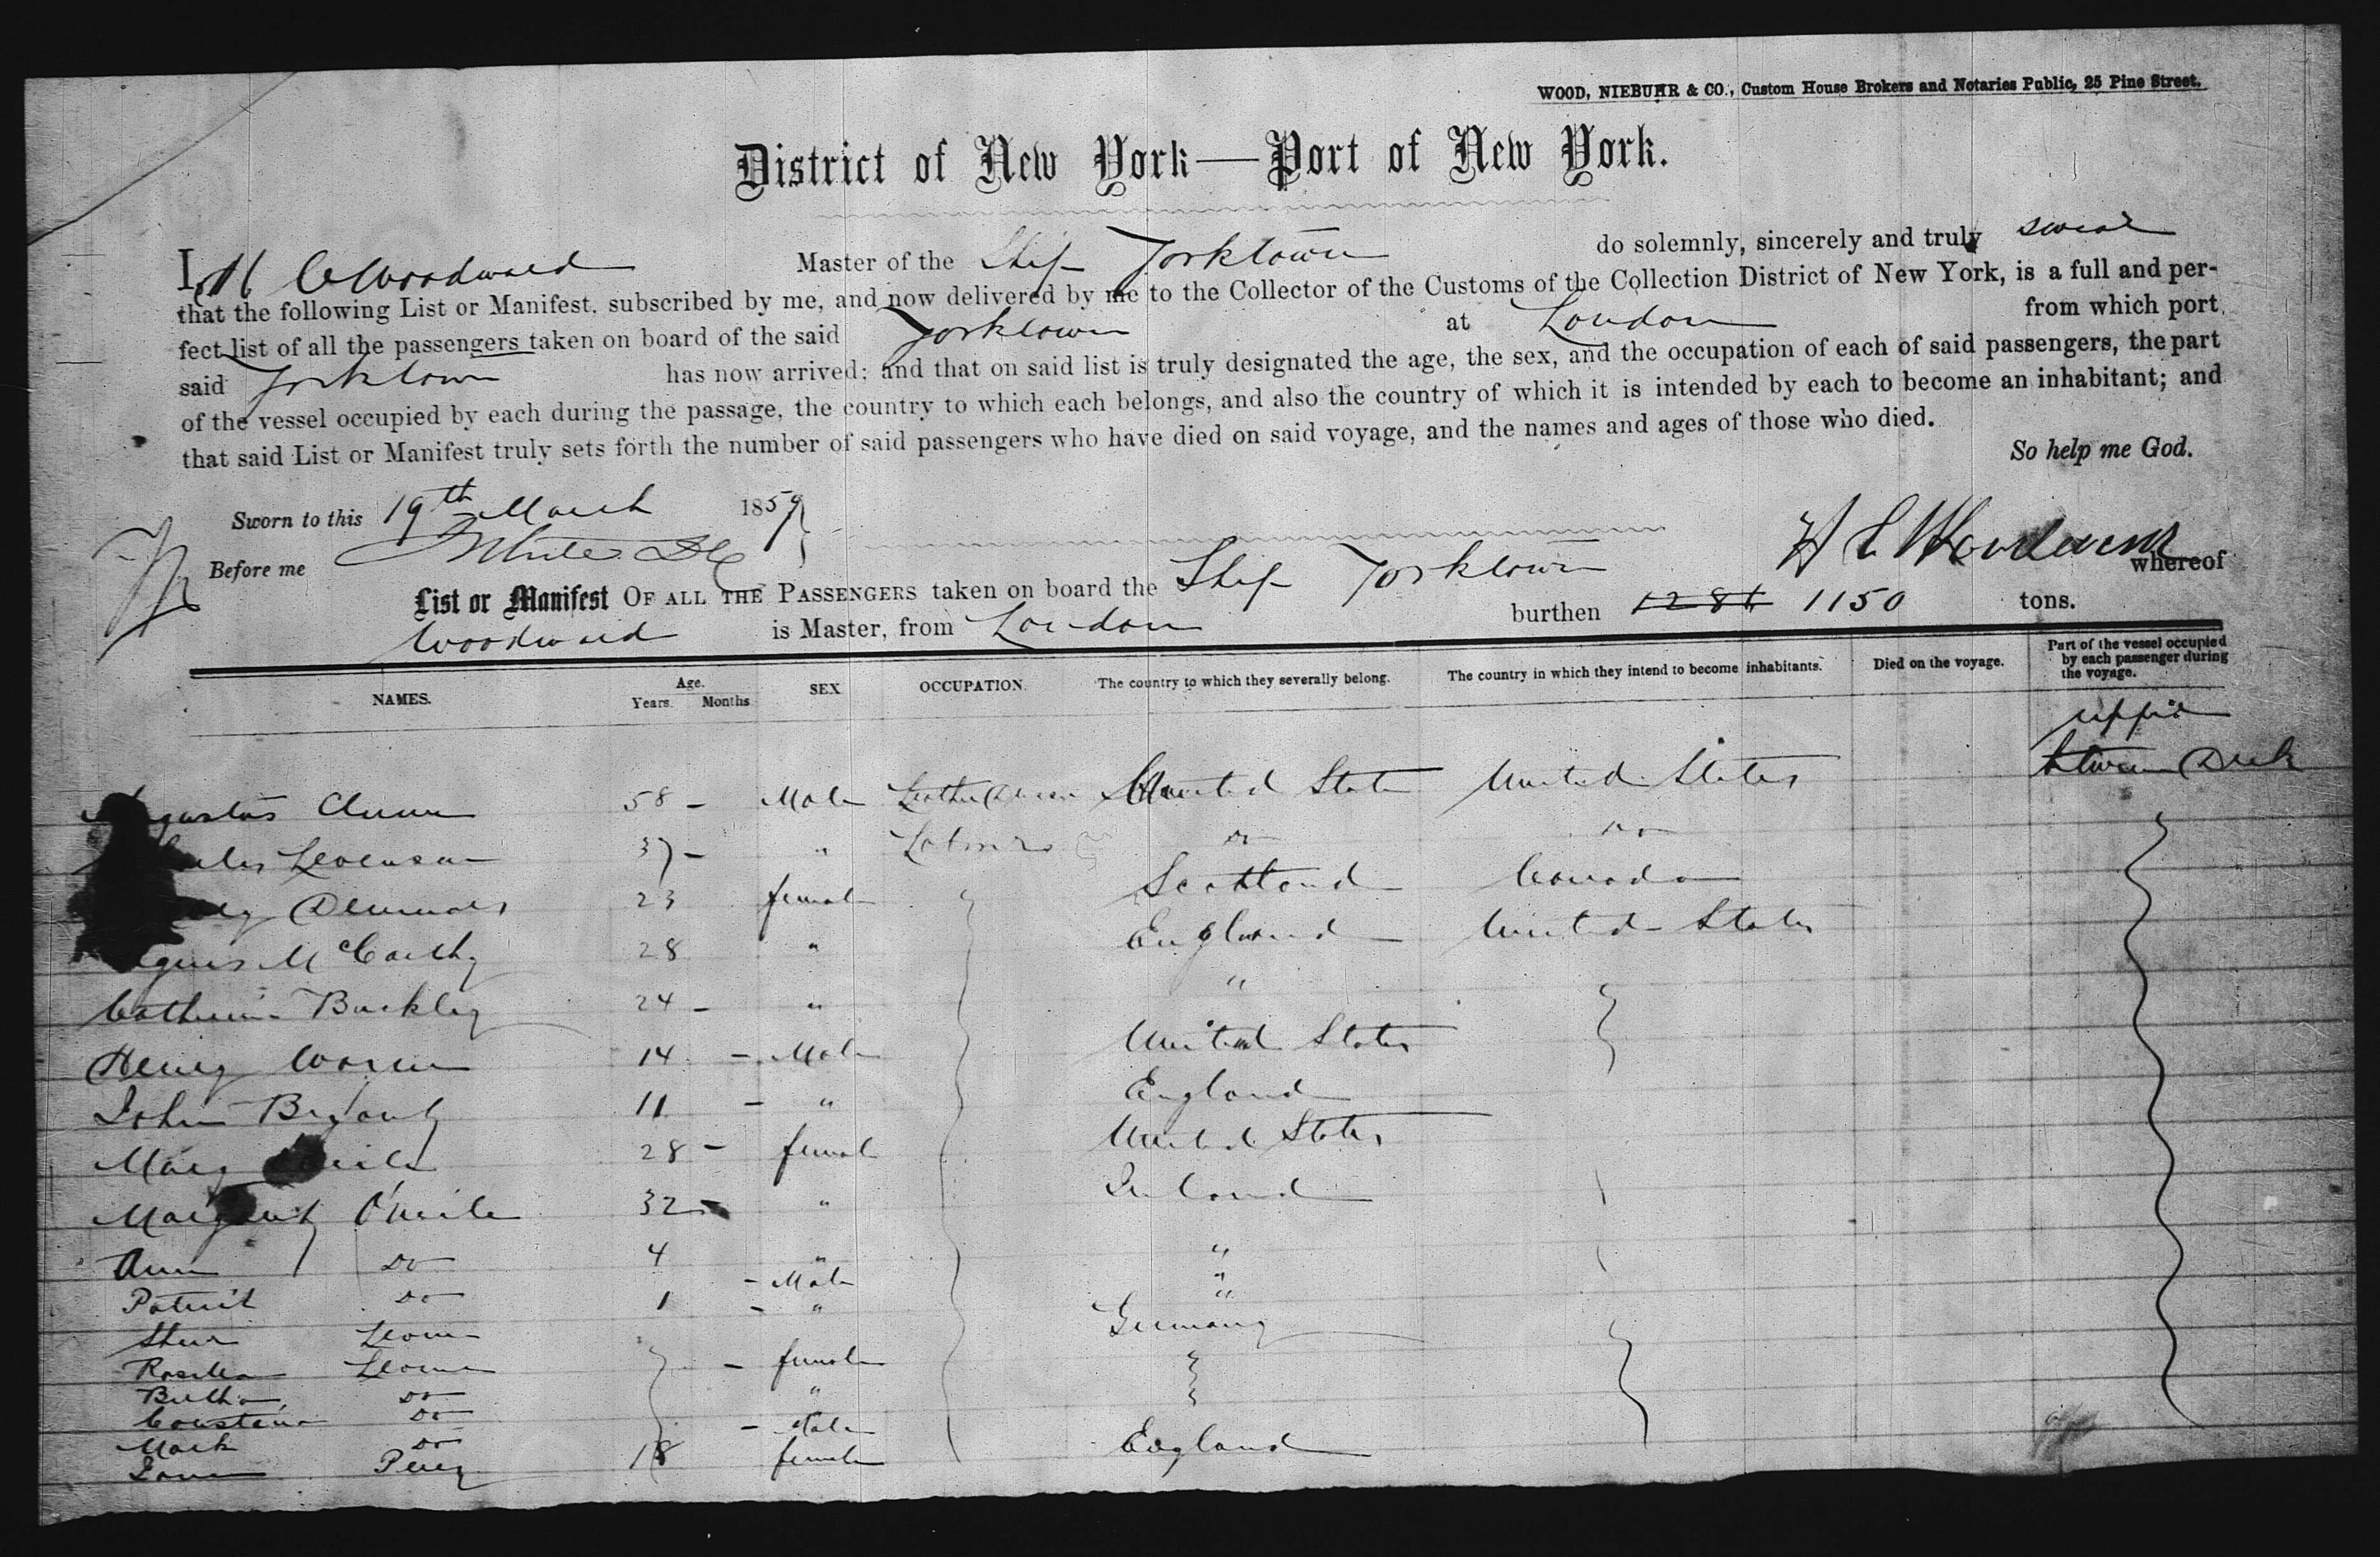 WOOD, NIEBUHR & CO., Custom House Brokers and Notaries Public, 25 Pine Street.
District of New York—Port of New York.
I, H C Woodward Master of the Ship Yorktown do solemnly, sincerely and truly swear
that the following List or Manifest, subscribed by me, and now delivered by me to the Collector of the Customs of the Collection District of New York, is a full and per-
fect list of all the passengers taken on board of the said Yorktown at London from which port
said Yorktown has now arrived; and that on said list is truly designated the age, the sex, and the occupation of each of said passengers, the part
of the vessel occupied by each during the passage, the country to which each belongs, and also the country of which it is intended by each to become an inhabitant; and
that said List or Manifest truly sets forth the number of said passengers who have died on said voyage, and the names and ages of those who died.
So help me God.
Sworn to this 19th March 1859
Before me
H C Woodward
List or Manifest OF ALL THE PASSENGERS taken on board the Ship Yorktown whereof
Woodward is Master, from London burthen 1150 tons.
NAMES. Age. Years. Months SEX OCCUPATION. The country to which they severally belong. The country in which they intend to become inhabitants. Died on the voyage. Part of the vessel occupied by each passenger during the voyage.
upper
between Deck
58 - Male United State United States
37 - " Do Do
23 female Scotland Canada
McCarthy 28 " England United States
Catherine Buckley 24 - " "
Henry Warren 14 - Male United States
John Bryant 11 - " England
Mary 28 - female United States
Margaret O'Neile 32 - " Ireland
Ann Do 4 " "
Patrick Do 1 - Male "
- " "
Germany
- female
Bertha Do "
Do
Mark Do - Male
Percy 18 female England